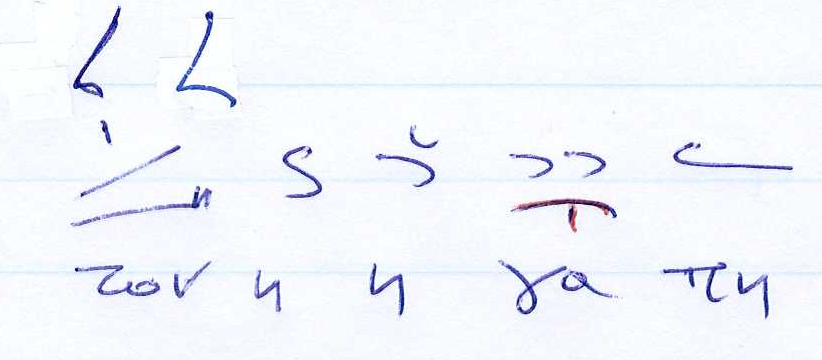 τον η η γα πη